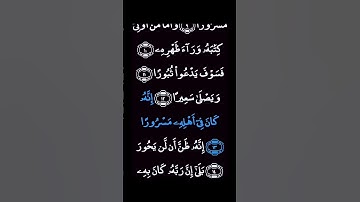 مَسْرُورًا ۝٩ وَأَمَّا مَنْ أُوتِيَ
كِتَٰبَهُۥ وَرَآءَ ظَهْرِهِۦ ۝١٠
فَسَوْفَ يَدْعُوا۟ ثُبُورًا ۝١١
وَيَصْلَىٰ سَعِيرًا ۝١٢ إِنَّهُۥ
كَانَ فِىٓ أَهْلِهِۦ مَسْرُورًا
۝١٣ إِنَّهُۥ ظَنَّ أَن لَّن يَحُورَ
۝١٤ بَلَىٰٓ إِنَّ رَبَّهُۥ كَانَ بِهِۦ